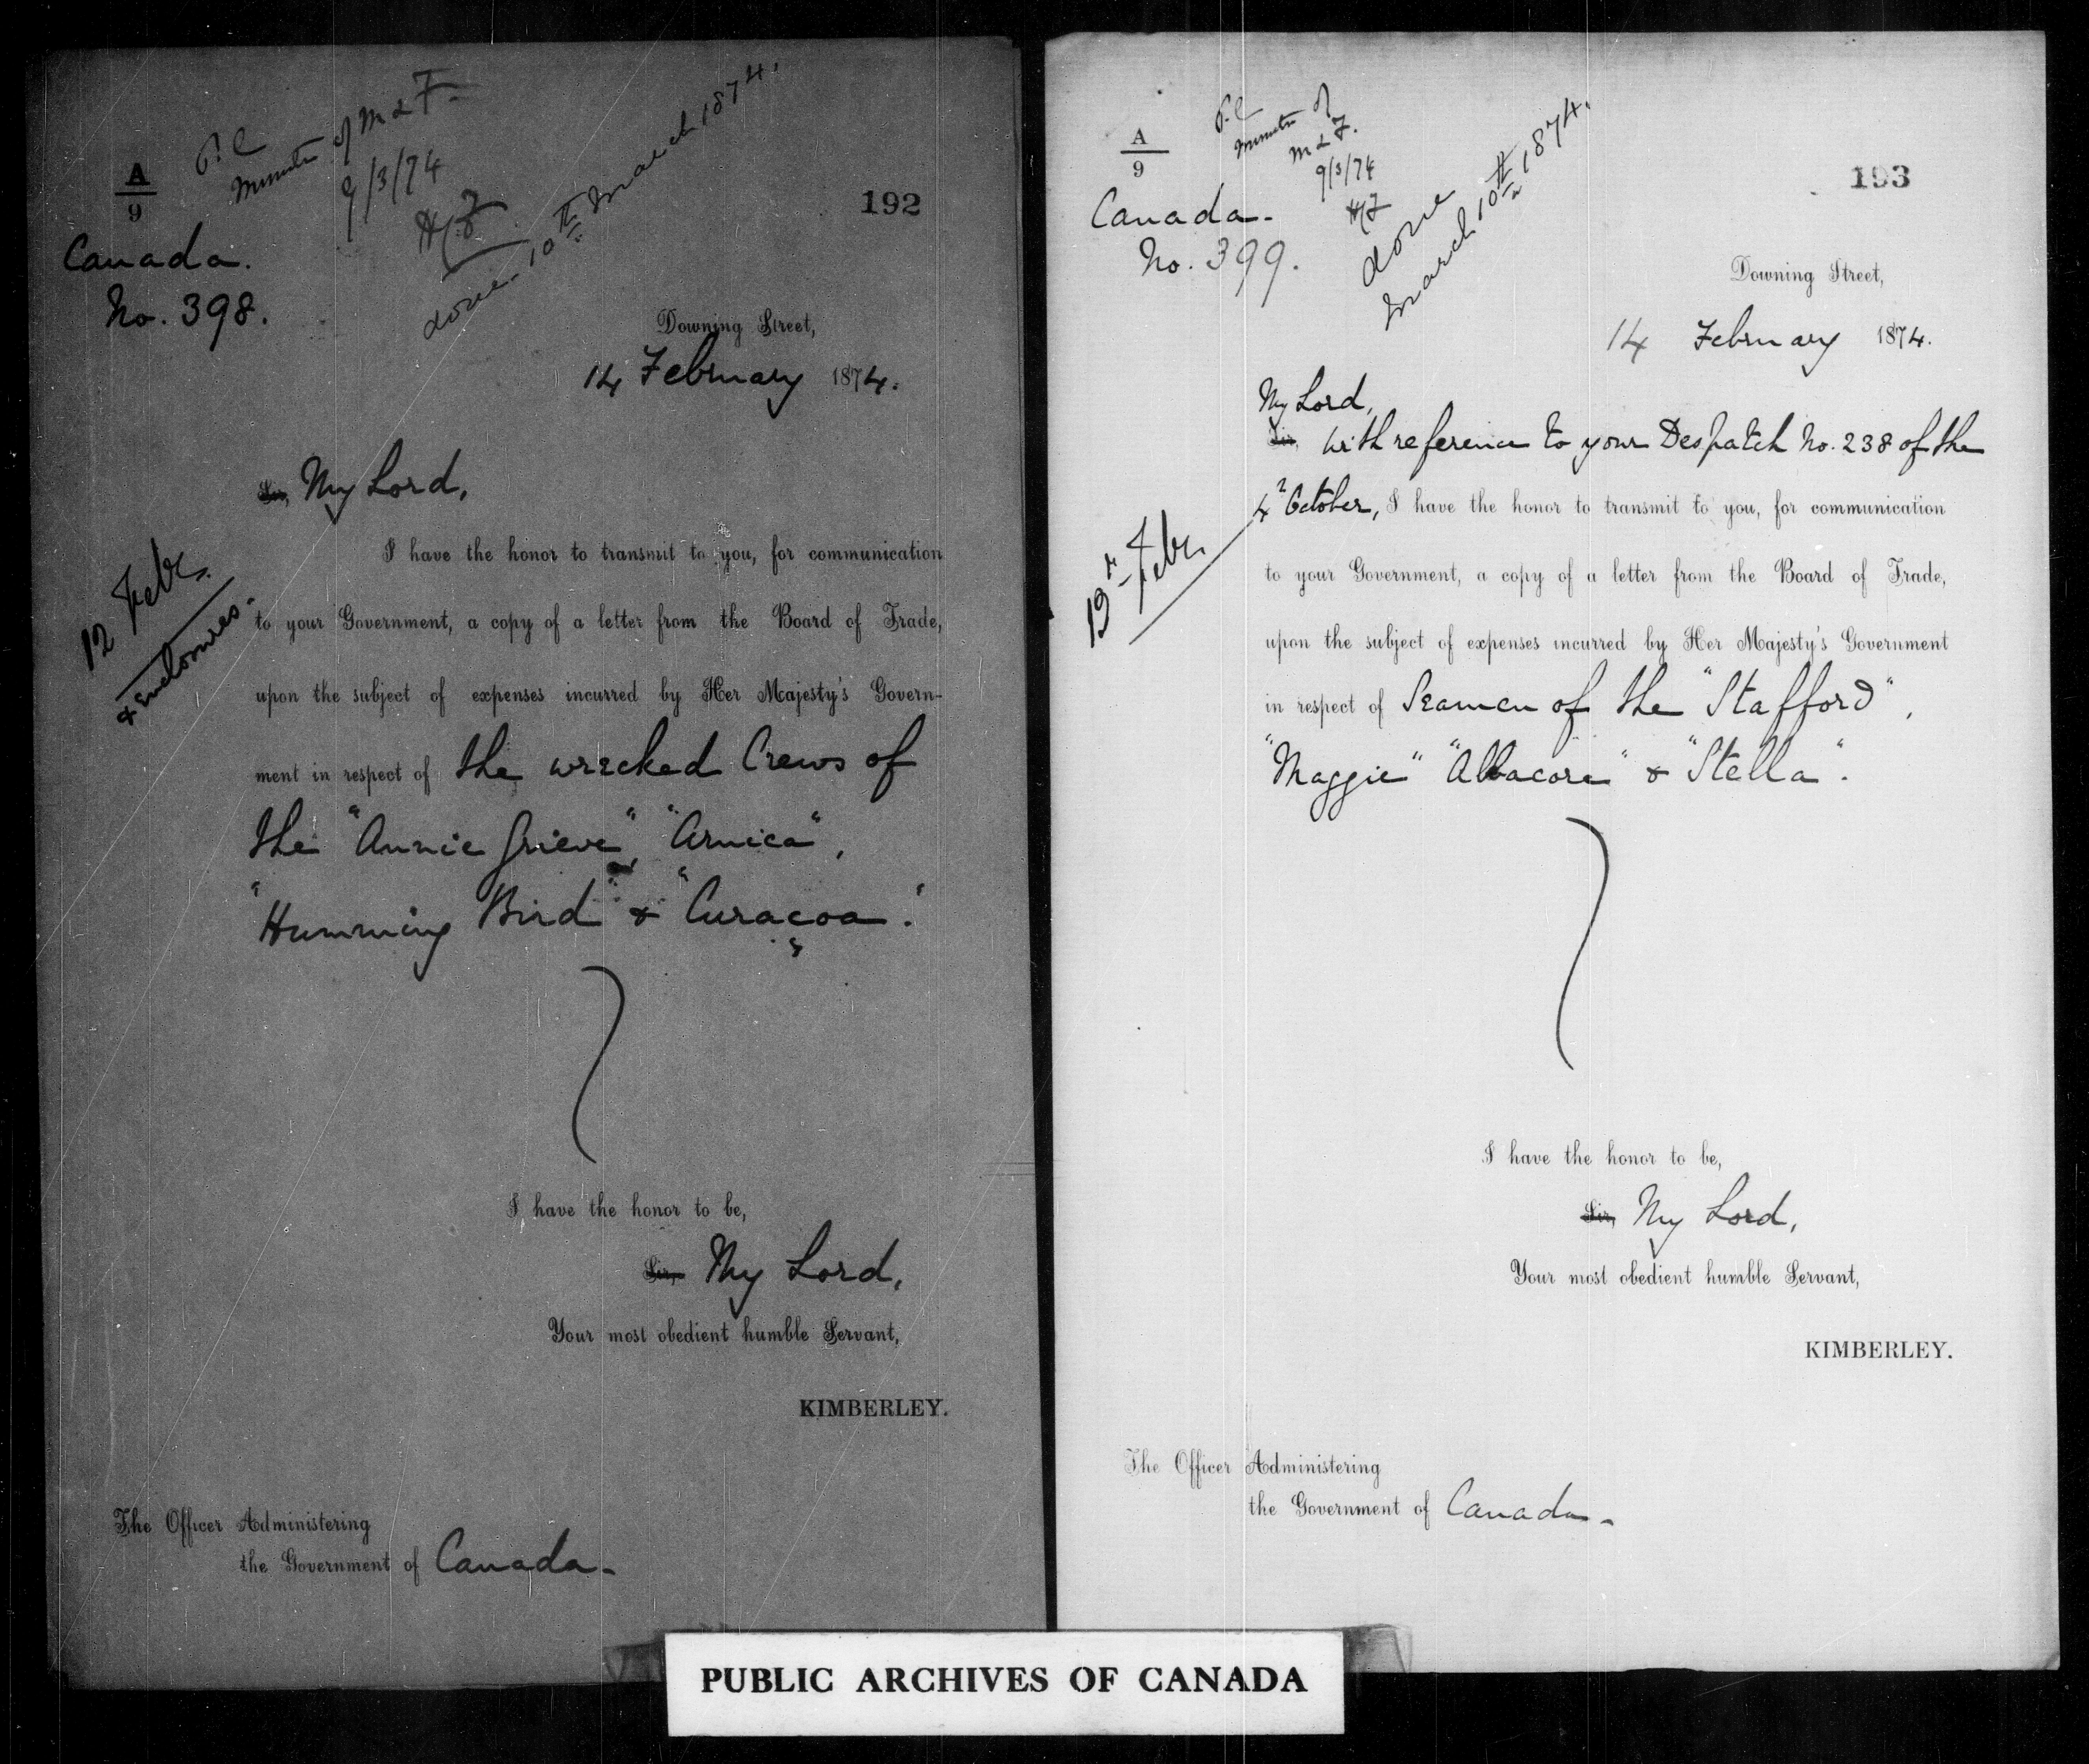 A
9
Canada.
No. 398.
P.C
Minister of M & F.
9/3/74
done 10th March 1874.
192
Downing Street,
14 February 1874.
Sir, My Lord,
12 Feb.
& Enclosures.
I have the honor to transmit to you, for communication
to your Government, a copy of a letter from the Board of Trade,
upon the subject of expenses incurred by Her Majesty's Govern-
ment in respect of the wrecked Crews of
the "Annie Grieve", "Arnica",
"Humming Bird" & "Curaçoa".
I have the honor to be,
Sir, My Lord,
Your most obedient humble Servant,
KIMBERLEY.
The Officer Administering
the Government of Canada.
A
9
Canada.
No. 399.
P.C
Minister of
M & F.
9/3/74
done
March 10th 1874.
193
Downing Street,
14 February 1874.
My Lord,
Sir, With reference to your Despatch No. 238 of the
4 October, I have the honor to transmit to you, for communication
Feb.
to your Government, a copy of a letter from the Board of Trade,
upon the subject of expenses incurred by Her Majesty's Government
in respect of Seamen of the "Stafford",
"Maggie" "Albacore" & "Stella".
I have the honor to be,
Sir, My Lord,
Your most obedient humble Servant,
KIMBERLEY.
The Officer Administering
the Government of Canada.
PUBLIC ARCHIVES OF CANADA